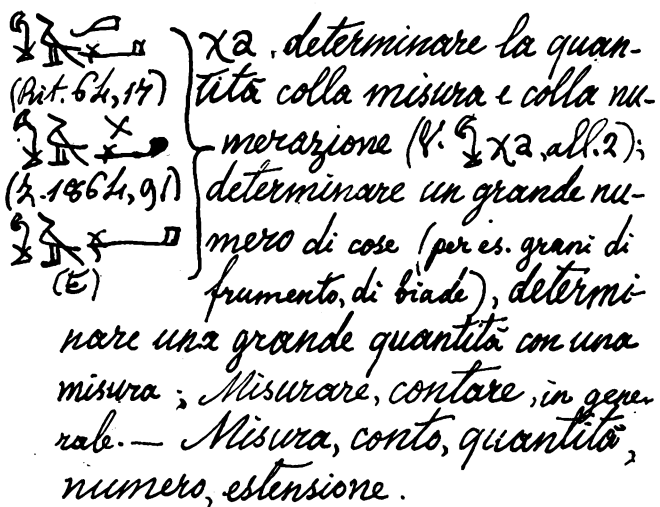 χa, determinare la quan-
(Rit. 64, 17) tità colla misura e colla nu-
merazione (V. χa, all. 2);
(Z. 1864, 91) determinare un grande nu-
mero di cose (per es. grani di
(E) frumento, di biade), determi-
nare una grande quantità con una
misura; Misurare, contare, in gene-
rale. — Misura, conto, quantità,
numero, estensione.